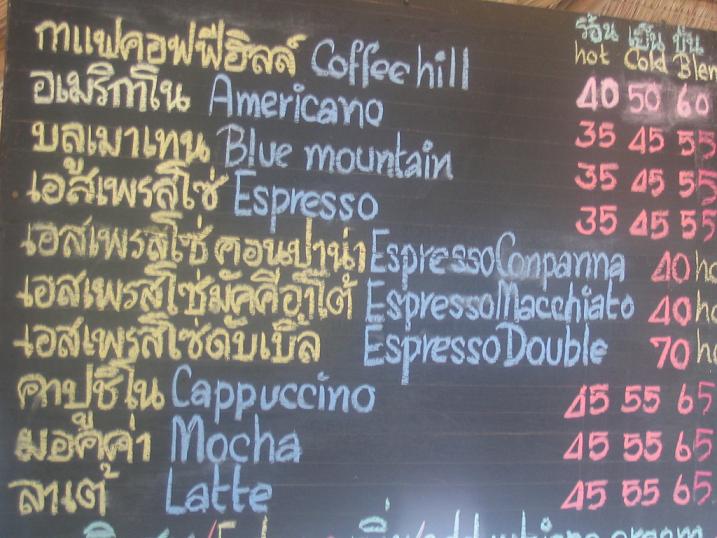 ร้อน เย็น ปั่น
hot Cold Blen
กาแฟคอฟฟีฮิลล์ Coffee hill 40 50 60
อเมริกาโน Americano 35 45 55
บลูเมาเทน Blue mountain 35 45 55
เอสเพรสโซ่ Espresso 35 45 55
เอสเพรสโซ่ คอนปาน่า Espresso Conpanna 40 ho
เอสเพรสโซ่มัคคีอาโต้ Espresso Macchiato 40 ho
เอสเพรสโซ่ดับเบิ้ล Espresso Double 70 ho
คาปูชิโน Cappuccino 45 55 65
มอคค่า Mocha 45 55 65
ลาเต้ Latte 45 55 65